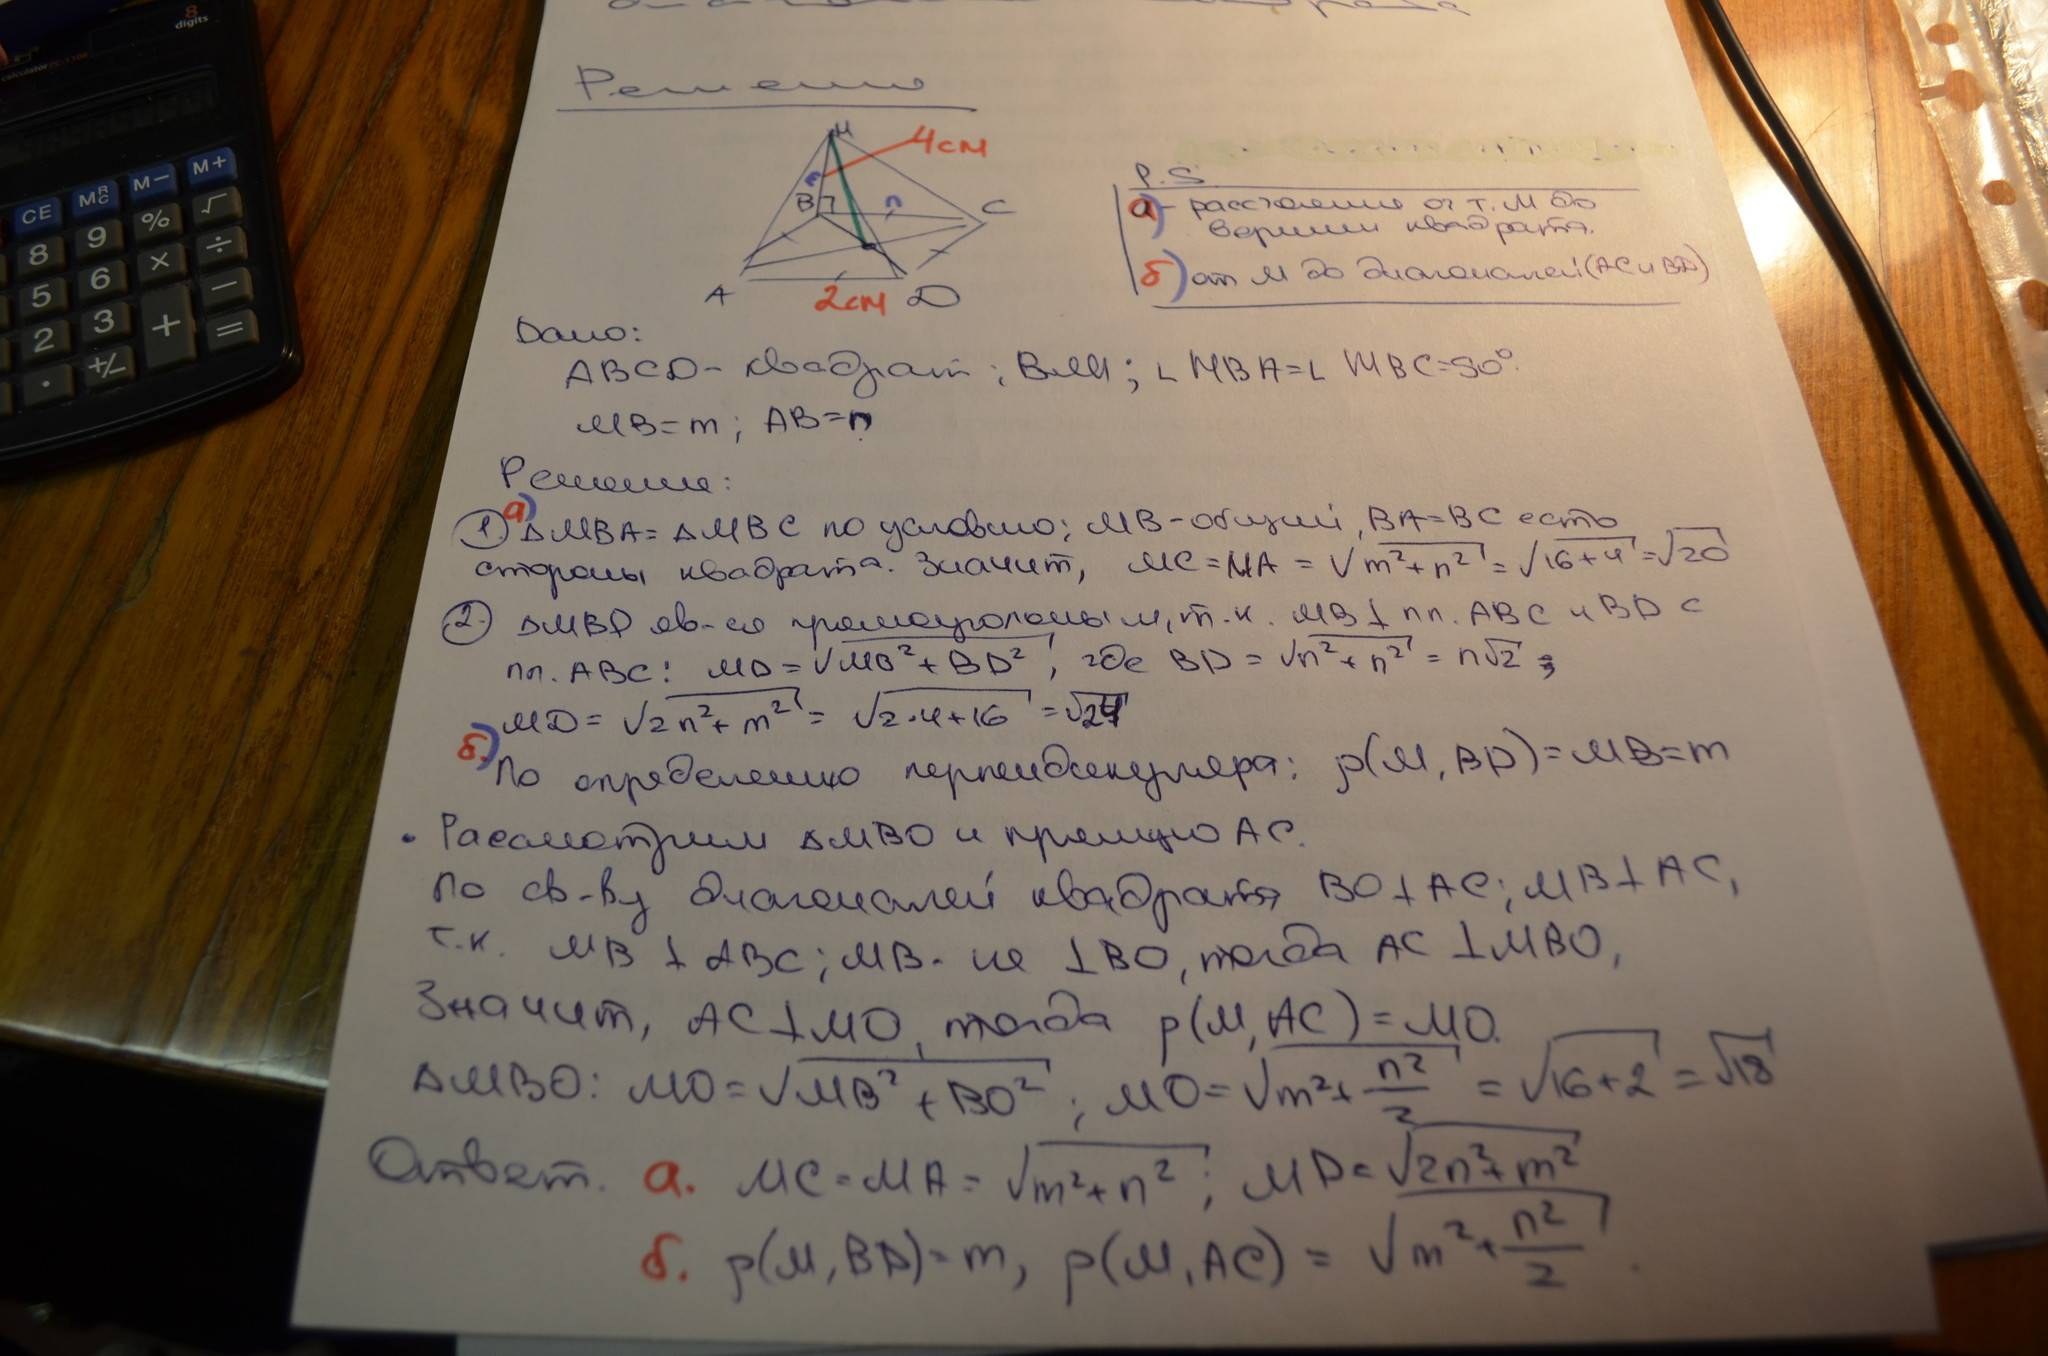 8
digits
CE
MRC
M-
M+
8
9
%
√
5
6
×
÷
2
3
+
−
·
+/-
=
Решение
M
4см
m
B
n
C
A
2см
D
P.S.
а) - расстояние от т. М до
вершин квадрата.
б) от М до диагоналей (АС и BD)
Дано:
ABCD - квадрат; ВМ; ∟ MBA = ∟ MBC = 90°.
MB = m; AB = n
Решение:
а)
1. ΔMBA = ΔMBC по условию; MB - общий, BA = BC есть
стороны квадрата. Значит, MC = MA = √m²+n² = √16+4 = √20
2. ΔMBD яв-ся прямоугольным, т.к. MB ⊥ пл. ABC и BD ⊂
пл. ABC: MD = √MB²+BD², где BD = √n²+n² = n√2;
MD = √2n²+m² = √2·4+16 = √24
б) По определению перпендикуляра: ρ(M, BD) = MB = m
• Рассмотрим ΔMBO и прямую AC.
По св-ву диагоналей квадрата BO ⊥ AC; MB ⊥ AC,
т.к. MB ⊥ ABC; MB - не ⊥ BO, тогда AC ⊥ MBO,
Значит, AC ⊥ MO, тогда ρ(M, AC) = MO.
ΔMBO: MO = √MB²+BO²; MO = √m²+n²/2 = √16+2 = √18
Ответ. а. MC = MA = √m²+n²; MD = √2n²+m²
б. ρ(M, BD) = m, ρ(M, AC) = √m²+n²/2.